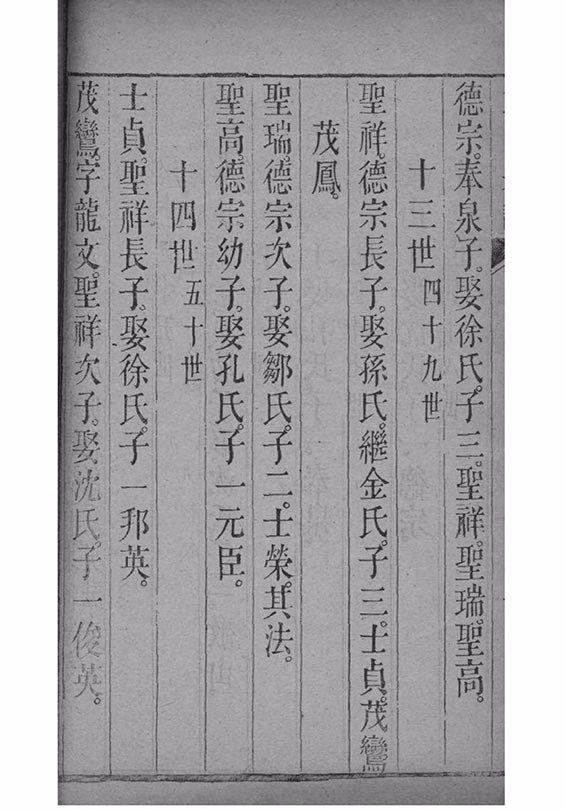 德宗。奉泉子。娶徐氏。子三。聖祥。聖瑞。聖高。
十三世四十九世
聖祥。德宗長子。娶孫氏。繼金氏。子三。士貞。茂鸞
茂鳳。
聖瑞。德宗次子。娶鄒氏。子二。士榮。其法。
聖高。德宗幼子。娶孔氏。子一元臣。
十四世五十世
士貞。聖祥長子。娶徐氏。子一邦英。
茂鸞。字龍文。聖祥次子。娶沈氏。子一俊英。